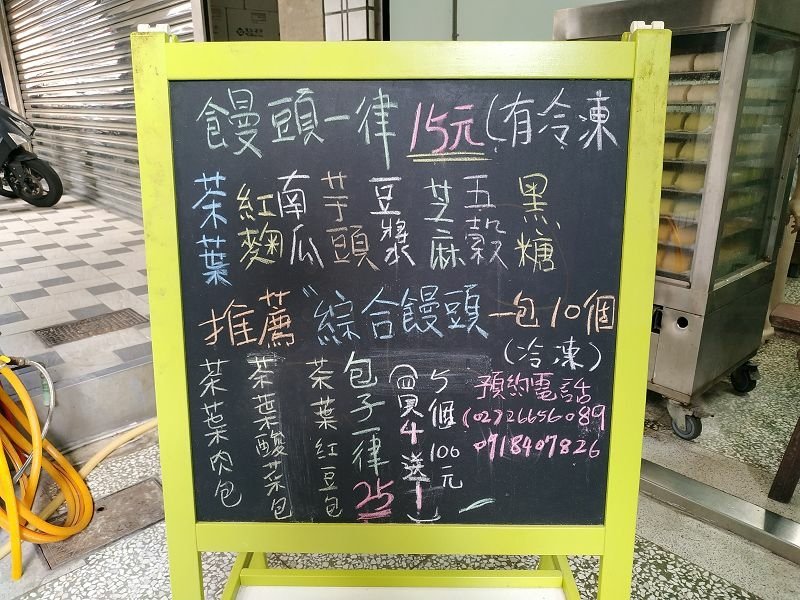 饅頭一律15元(有冷凍
茶葉 紅麴 南瓜 芋頭 豆漿 芝麻 五穀 黑糖
推薦"綜合饅頭一包10個
(冷凍)
預約電話
(02)26656089
0918407826
5個100元
(買4送1)
包子一律25
茶葉紅豆包
茶葉酸菜包
茶葉肉包